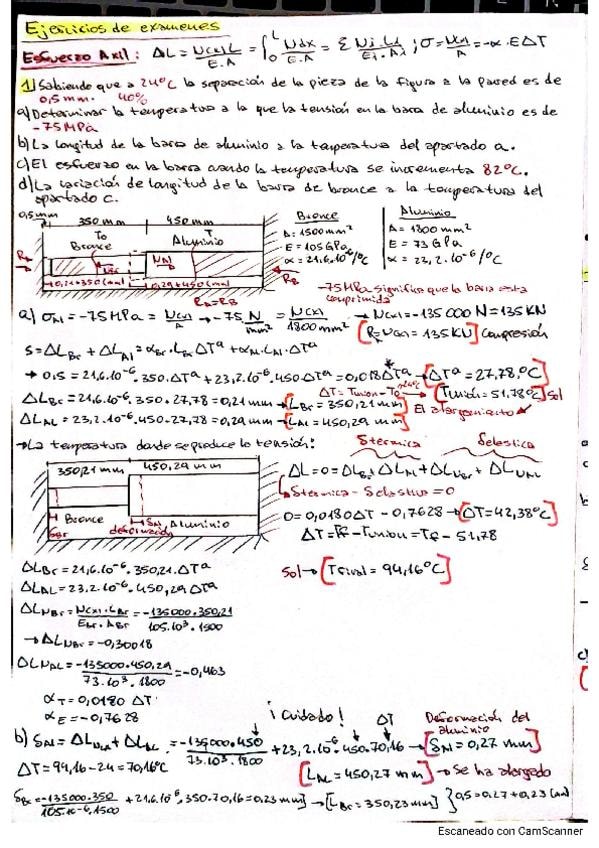 Ejercicios de examenes
Esfuerzo Axil: ΔL = N(x)·L / E·A = ∫₀ᴸ N dx / E·A = Σ Ni·Li / Ei·Ai ; σ = N(x)/A = -α·EΔT
1) Sabiendo que a 24ºC la separación de la pieza de la figura a la pared es de
0,5mm. 40%
a) Determinar la temperatura a la que la tensión en la barra de aluminio es de
-75MPa
b) La longitud de la barra de aluminio a la temperatura del apartado a.
c) El esfuerzo en la barra cuando la temperatura se incrementa 82ºC.
d) La variación de longitud de la barra de bronce a la temperatura del
apartado c.
0,5mm
350mm 450mm
To Bronce
T Aluminio
NAl
RA
RB
RA=RB
0,21+350(mm) 0,29+450(mm)
Bronce
A = 1500mm²
E = 105GPa
α = 21,6·10⁻⁶/ºC
Aluminio
A = 1800mm²
E = 73GPa
α = 23,2·10⁻⁶/ºC
-75MPa significa que la barra esta
comprimida
a) σAl = -75MPa = N(x)/A → -75 N/mm² = N(x)/1800mm² → N(x) = -135 000 N = 135 KN
[R = N(x) = 135KN] Compresión
S = ΔLBr + ΔLAl = αBr·LBr·ΔTª + αAl·LAl·ΔTª
→ 0,5 = 21,6·10⁻⁶·350·ΔTª + 23,2·10⁻⁶·450·ΔTª = 0,018ΔTª → [ΔTª = 27,78ºC]
ΔT = Tunión - To 24ºC → [Tunión = 51,78ºC] Sol
ΔLBr = 21,6·10⁻⁶·350·27,78 = 0,21mm → [LBr = 350,21mm]
ΔLAL = 23,2·10⁻⁶·450·27,78 = 0,29mm → [LAL = 450,29mm]
El alargamiento
→ La temperatura donde se produce la tensión:
350,21mm 450,29mm
Bronce Aluminio
SBr deformación SAl
Stérmica Selástica
ΔL = 0 = ΔLBr + ΔLAl + ΔLNBr + ΔLNAL
Stérmica - Selástica = 0
0 = 0,0180ΔT - 0,7628 → [ΔT = 42,38ºC]
ΔT = Tf - Tunión = Tf - 51,78
Sol → [Tfinal = 94,16ºC]
ΔLBr = 21,6·10⁻⁶·350,21·ΔTª
ΔLAL = 23,2·10⁻⁶·450,29ΔTª
ΔLNBr = N(x)·LBr / EBr·ABr = -135000·350,21 / 105·10³·1500
→ ΔLNBr = -0,30018
ΔLNAL = -135000·450,29 / 73·10³·1800 = -0,463
αT = 0,0180 ΔT
αE = -0,7628
¡Cuidado! ΔT Deformación del
aluminio
b) SAl = ΔLNAL + ΔLAL = -135000·450 / 73·10³·1800 + 23,2·10⁻⁶·450·70,16 → [SAl = 0,27mm]
ΔT = 94,16 - 24 = 70,16ºC
[LAL = 450,27mm] → Se ha alargado
SBr = -135000·350 / 105·10⁻⁶·1500 + 21,6·10⁻⁶·350·70,16 = 0,23mm] → [LBr = 350,23mm] } 0,5 = 0,27+0,23 (mm)
c)
Escaneado con CamScanner